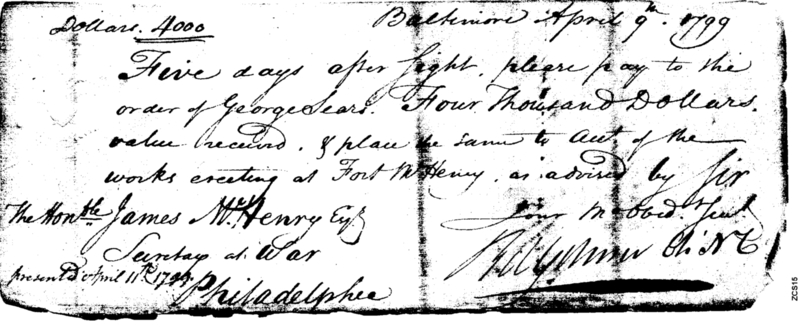 Dollars. 4000
Baltimore April 9th. 1799
Five days after Sight, please pay to the
order of George Sears. Four Thousand Dollars.
value received. & place the same to Acct. of the
works erecting at Fort McHenry, as advised by Sir
The Honble James McHenry Esqr
Your Mo Obed. Servt
Secretary at War
presented April 11th 1799
Philadelphee
ZCS15